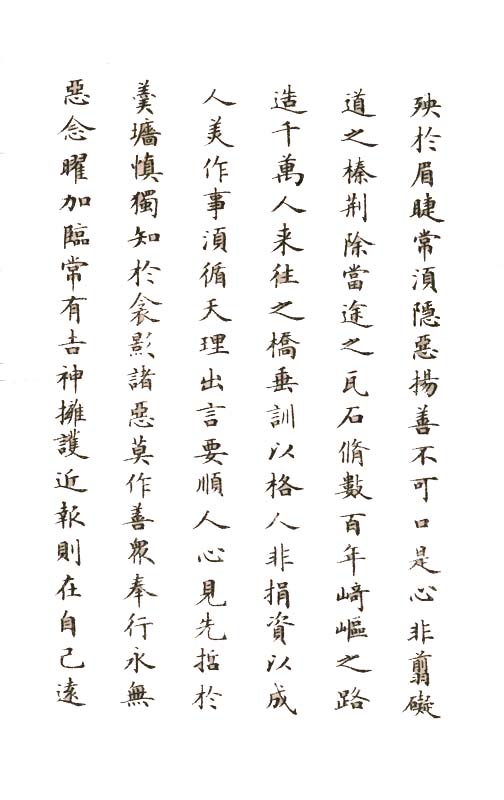 殃於眉睫常須隱惡揚善不可口是心非翦礙
道之榛荆除當途之瓦石脩數百年崎嶇之路
造千萬人来往之橋垂訓以格人非捐資以成
人美作事須循天理出言要順人心見先哲於
羹墻慎獨知於衾影諸惡莫作善眾奉行永無
惡念曜加臨常有吉神擁護近報則在自己遠